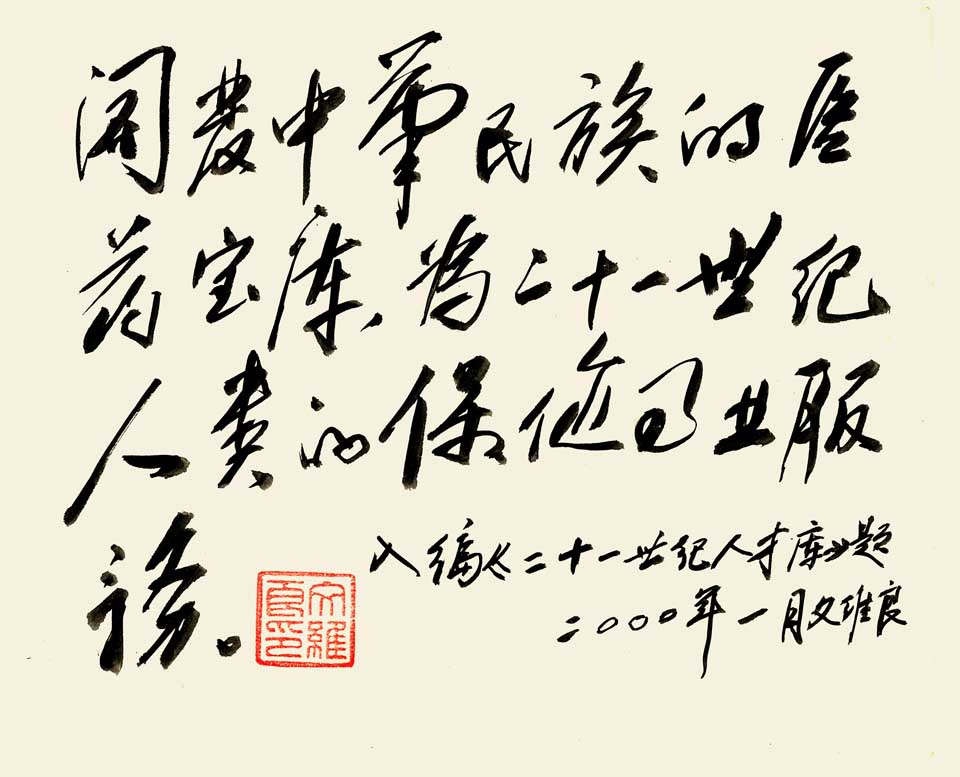 開發中华民族的医
药宝库,为二十一世纪
人类的保健事业服
務。
入编《二十一世纪人才库》题
二〇〇〇年一月文维良
文維良印